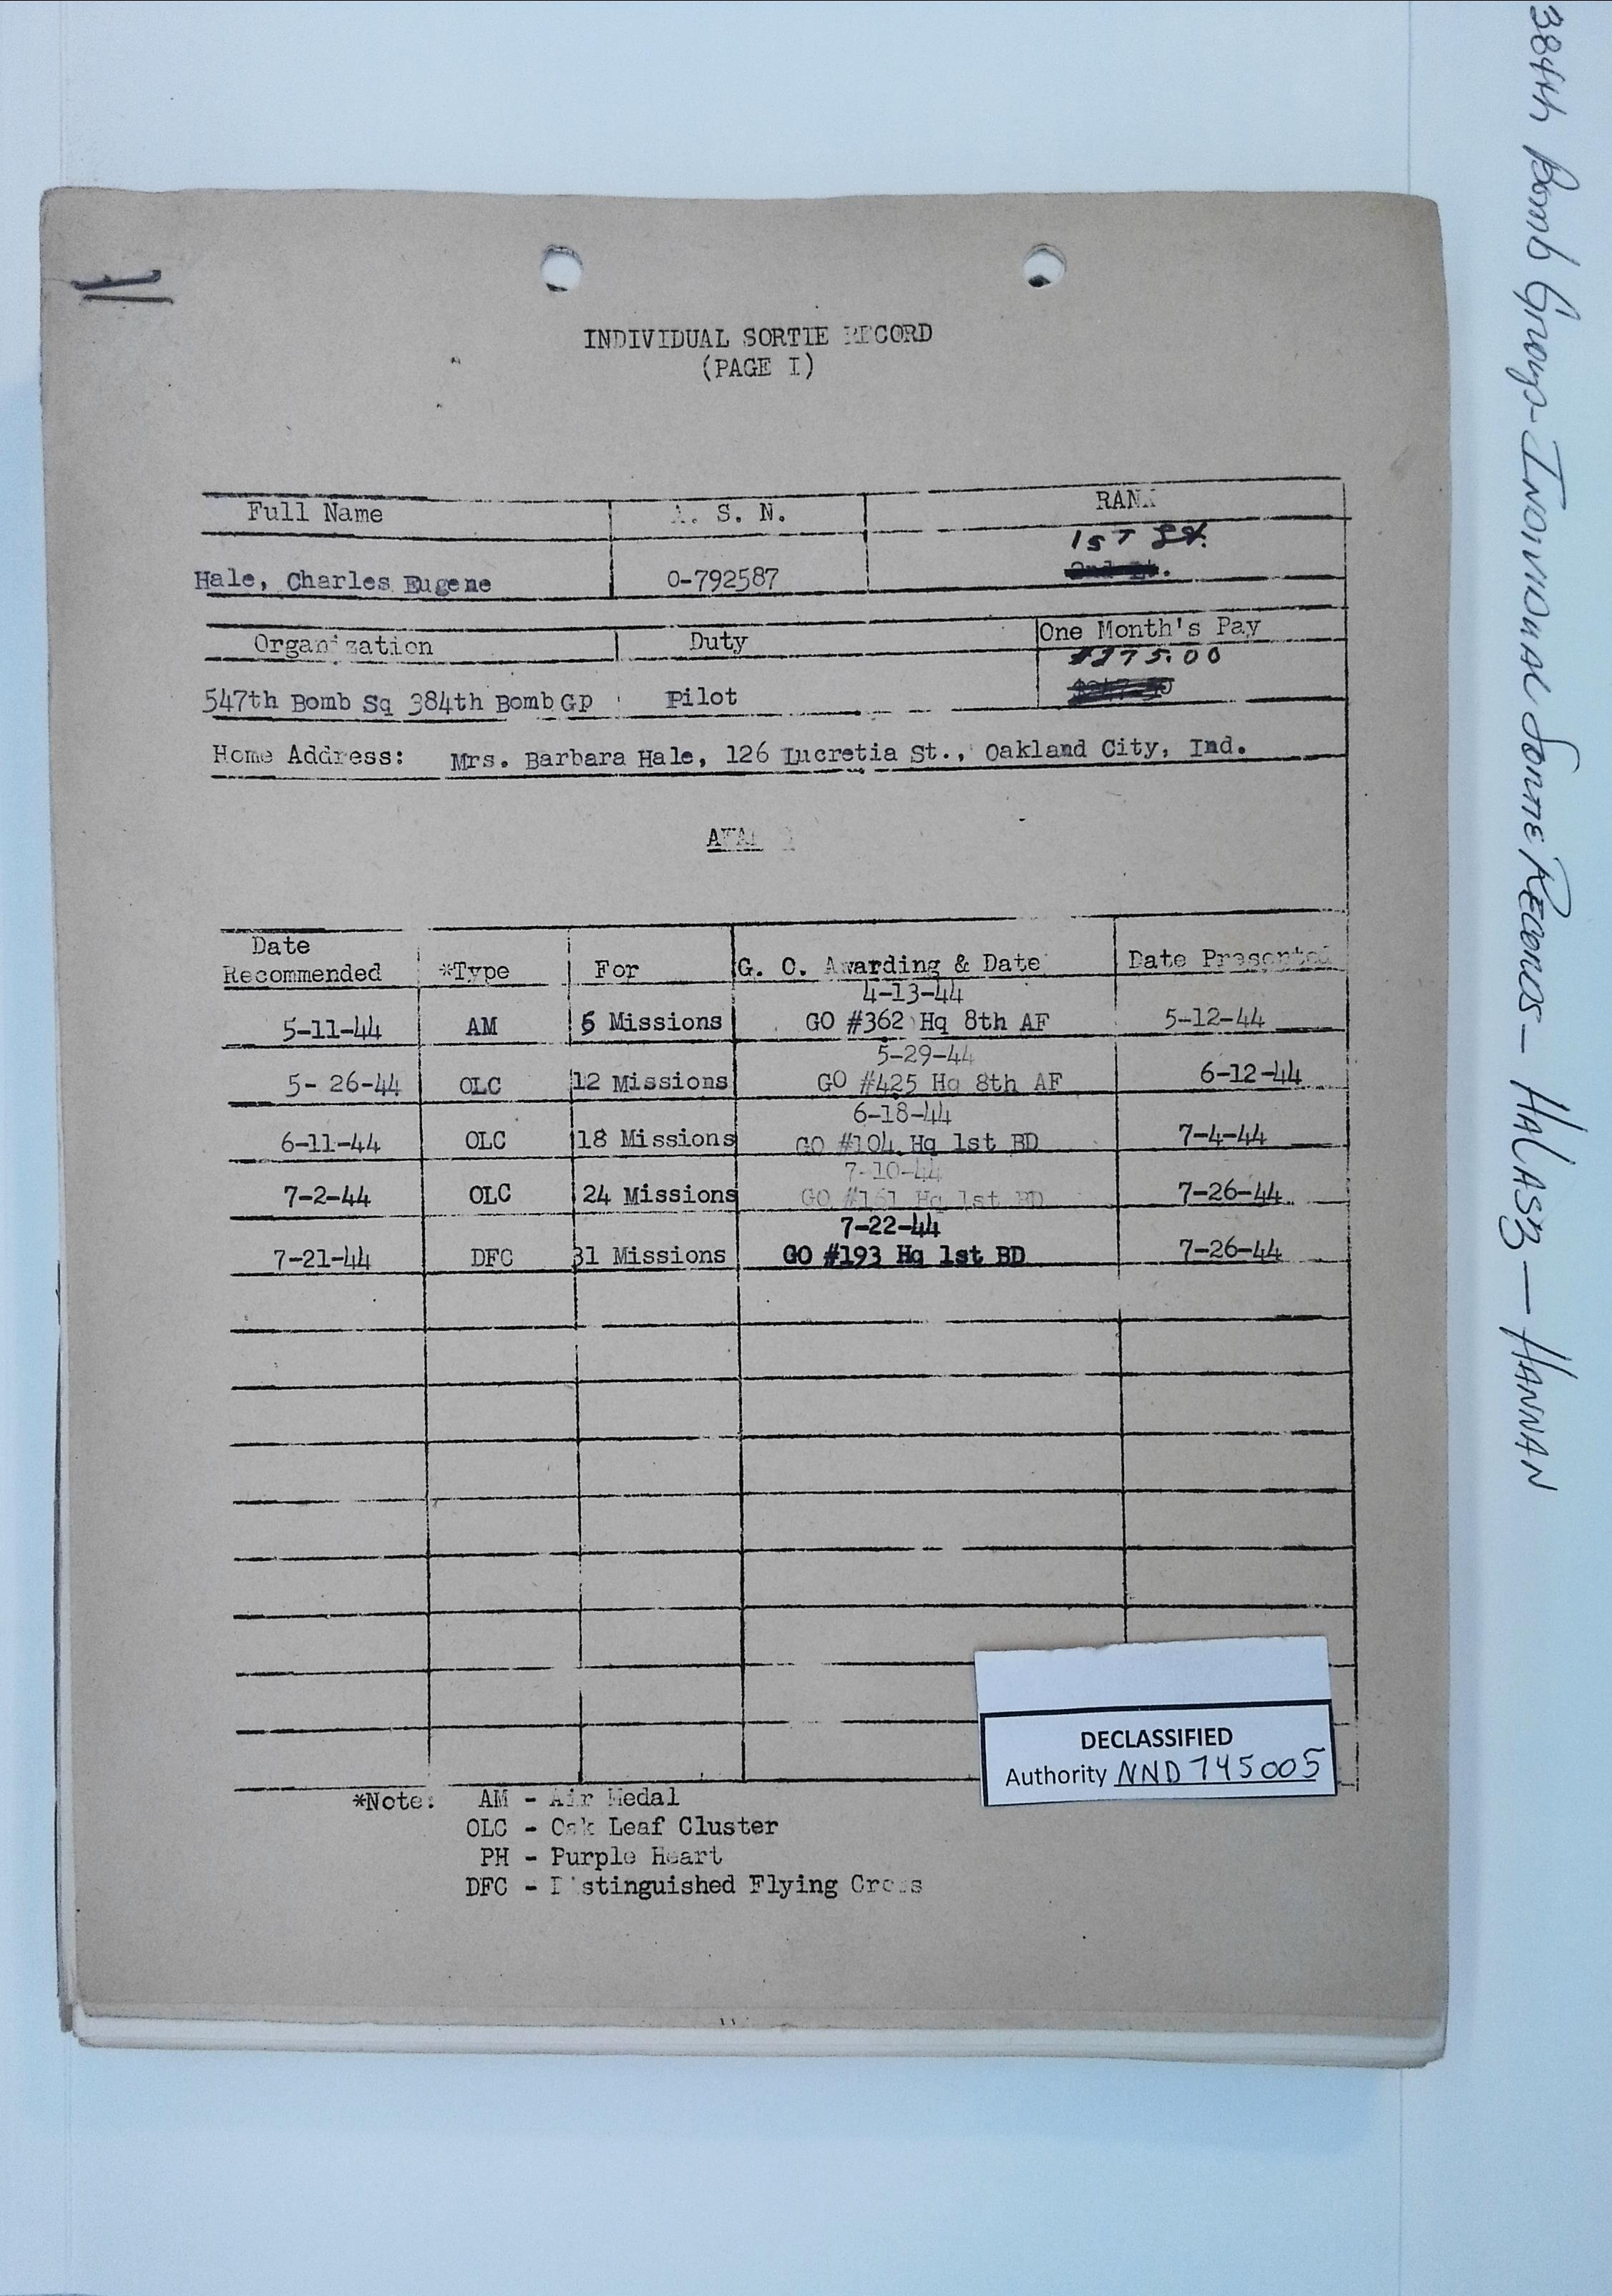 384th Bomb Group - Individual Sortie Records - Halasz - Hannan
INDIVIDUAL SORTIE RECORD
(PAGE I)
Full Name A. S. N. RANK
1ST Lt.
Hale, Charles Eugene O-792587 2nd Lt.
Organization Duty One Month's Pay
$275.00
547th Bomb Sq 384th Bomb Gp Pilot
Home Address: Mrs. Barbara Hale, 126 Lucretia St., Oakland City, Ind.
Date
Recommended *Type For G. O. Awarding & Date Date Presented
4-13-44
5-11-44 AM 6 Missions GO #362 Hq 8th AF 5-12-44
5-29-44
5- 26-44 OLC 12 Missions GO #425 Hq 8th AF 6-12-44
6-18-44
6-11-44 OLC 18 Missions GO #104 Hq 1st BD 7-4-44
7-10-44
7-2-44 OLC 24 Missions GO #161 Hq 1st BD 7-26-44
7-22-44
7-21-44 DFC 31 Missions GO #193 Hq 1st BD 7-26-44
DECLASSIFIED
Authority NND 745005
*Note: AM - Air Medal
OLC - Oak Leaf Cluster
PH - Purple Heart
DFC - Distinguished Flying Cross